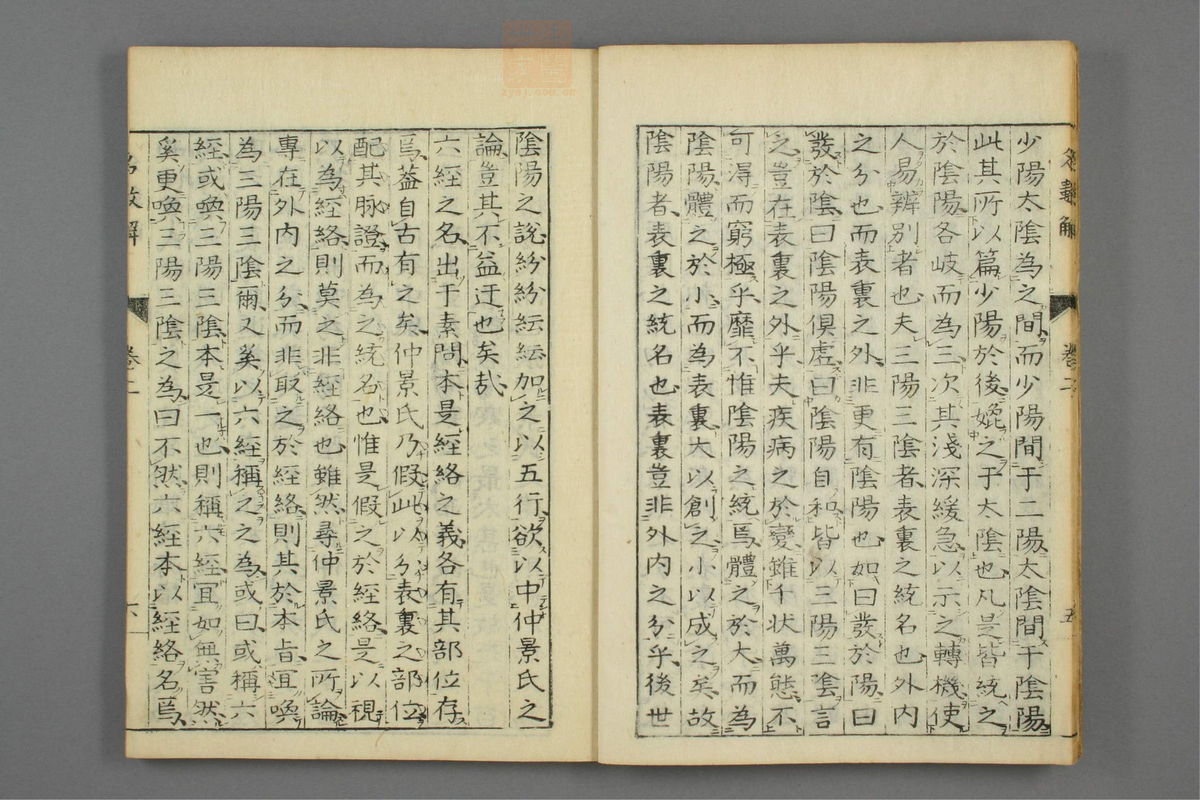 少陽太陰為之間而少陽間于二陽太陰間于陰陽
此其所以篇少陽於後㝃之于太陰也凡是皆統之
於陰陽各岐而為三次其淺深緩急以示之轉機使
人易辨別者也夫三陽三陰者表裏之統名也外內
之分也而表裏之外非更有陰陽也如曰發於陽曰
發於陰曰陰陽俱虛曰陰陽自和皆以三陽三陰言
之豈在表裏之外乎夫疾病之於變雖千状萬態不
可得而窮極乎靡不惟陰陽之統焉體之於大而為
陰陽體之於小而為表裏大以創之小以成之矣故
陰陽者表裏之統名也表裏豈非外內之分乎後世
卷二
五
陰陽之說紛紛紜紜加之以五行欲以中仲景氏之
論豈其不益迂也矣哉
六經之名出于素問本是經絡之義各有其部位存
焉蓋自古有之矣仲景氏乃假此以分表裏之部位
配其脉證而為之統名也惟是假之於經絡是以視
以為經絡則莫之非經絡也雖然尋仲景氏之所論
專在外內之分而非取之於經絡則其於本旨宜喚
為三陽三陰爾又奚以六經稱之之為或曰或稱六
經或喚三陽三陰本是一也則稱六經宜如無害然
奚更喚三陽三陰之為曰不然六經本以經絡名焉
卷二
六